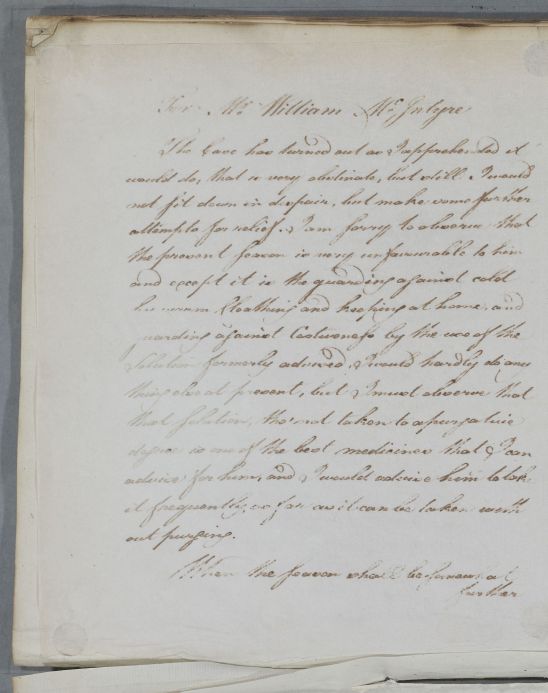 For Mr William McIntyre
The Case has turned out as I apprehended it
would do, that is very obstinate, but still I would
not sit down in despair, but make some further
attempts for relief. I am sorry to observe that
the present season is very unfavourable to him
and except it is the guarding against cold
by warm Cloathing and keeping at home, and
guarding against Costiveness by the use of the
Solution formerly advised, I would hardly do any
thing else at present, but I must observe that
that Solution, tho not taken to a purgative
degree is one of the best medicines that I can
advise for him, and I would advise him to take
it frequently, so far as it can be taken with
out purging.
When the season shall be somewhat
further